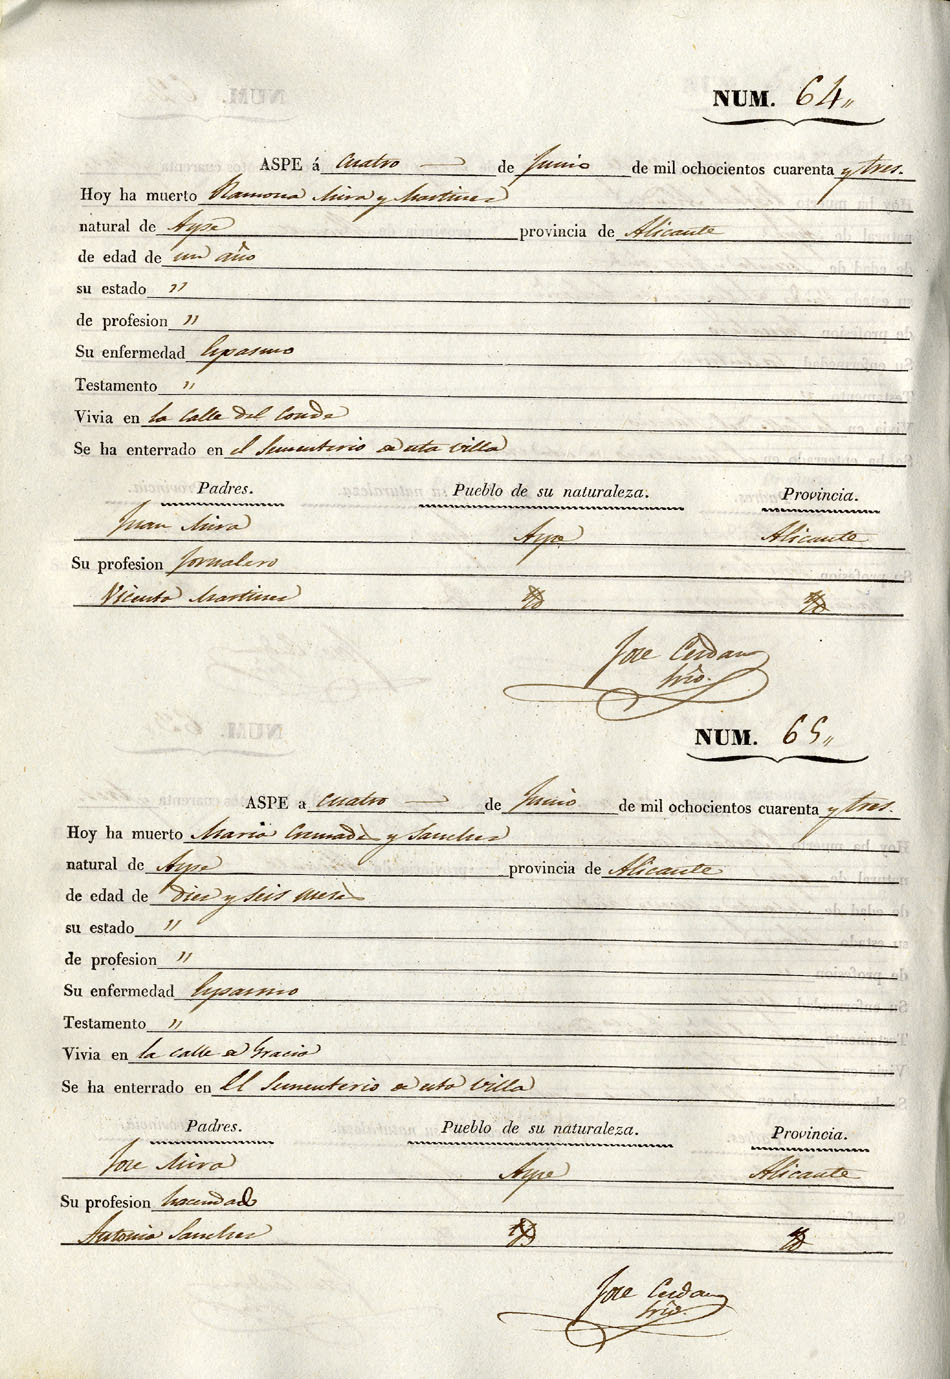 NUM. 64,,
ASPE á cuatro de Junio de mil ochocientos cuarenta y tres.
Hoy ha muerto Ramona Mira y Martinez
natural de Aspe provincia de Alicante
de edad de un año
su estado "
de profesion "
Su enfermedad Espasmo
Testamento "
Vivia en la Calle del Conde
Se ha enterrado en el Sementerio de esta Villa
Padres. Pueblo de su naturaleza. Provincia.
Juan Mira Aspe Alicante
Su profesion Jornalero
Vicenta Martinez
Jose Cerdan
Srio.
NUM. 65,,
ASPE a cuatro de Junio de mil ochocientos cuarenta y tres.
Hoy ha muerto Maria y Sanchez
natural de Aspe provincia de Alicante
de edad de diez y seis meses
su estado "
de profesion "
Su enfermedad Espasmo
Testamento "
Vivia en la calle de Gracia
Se ha enterrado en El Sementerio de esta Villa
Padres. Pueblo de su naturaleza. Provincia.
Jose Mira Aspe Alicante
Su profesion hacendado
Antonia Sanchez
Jose Cerdan
Srio.